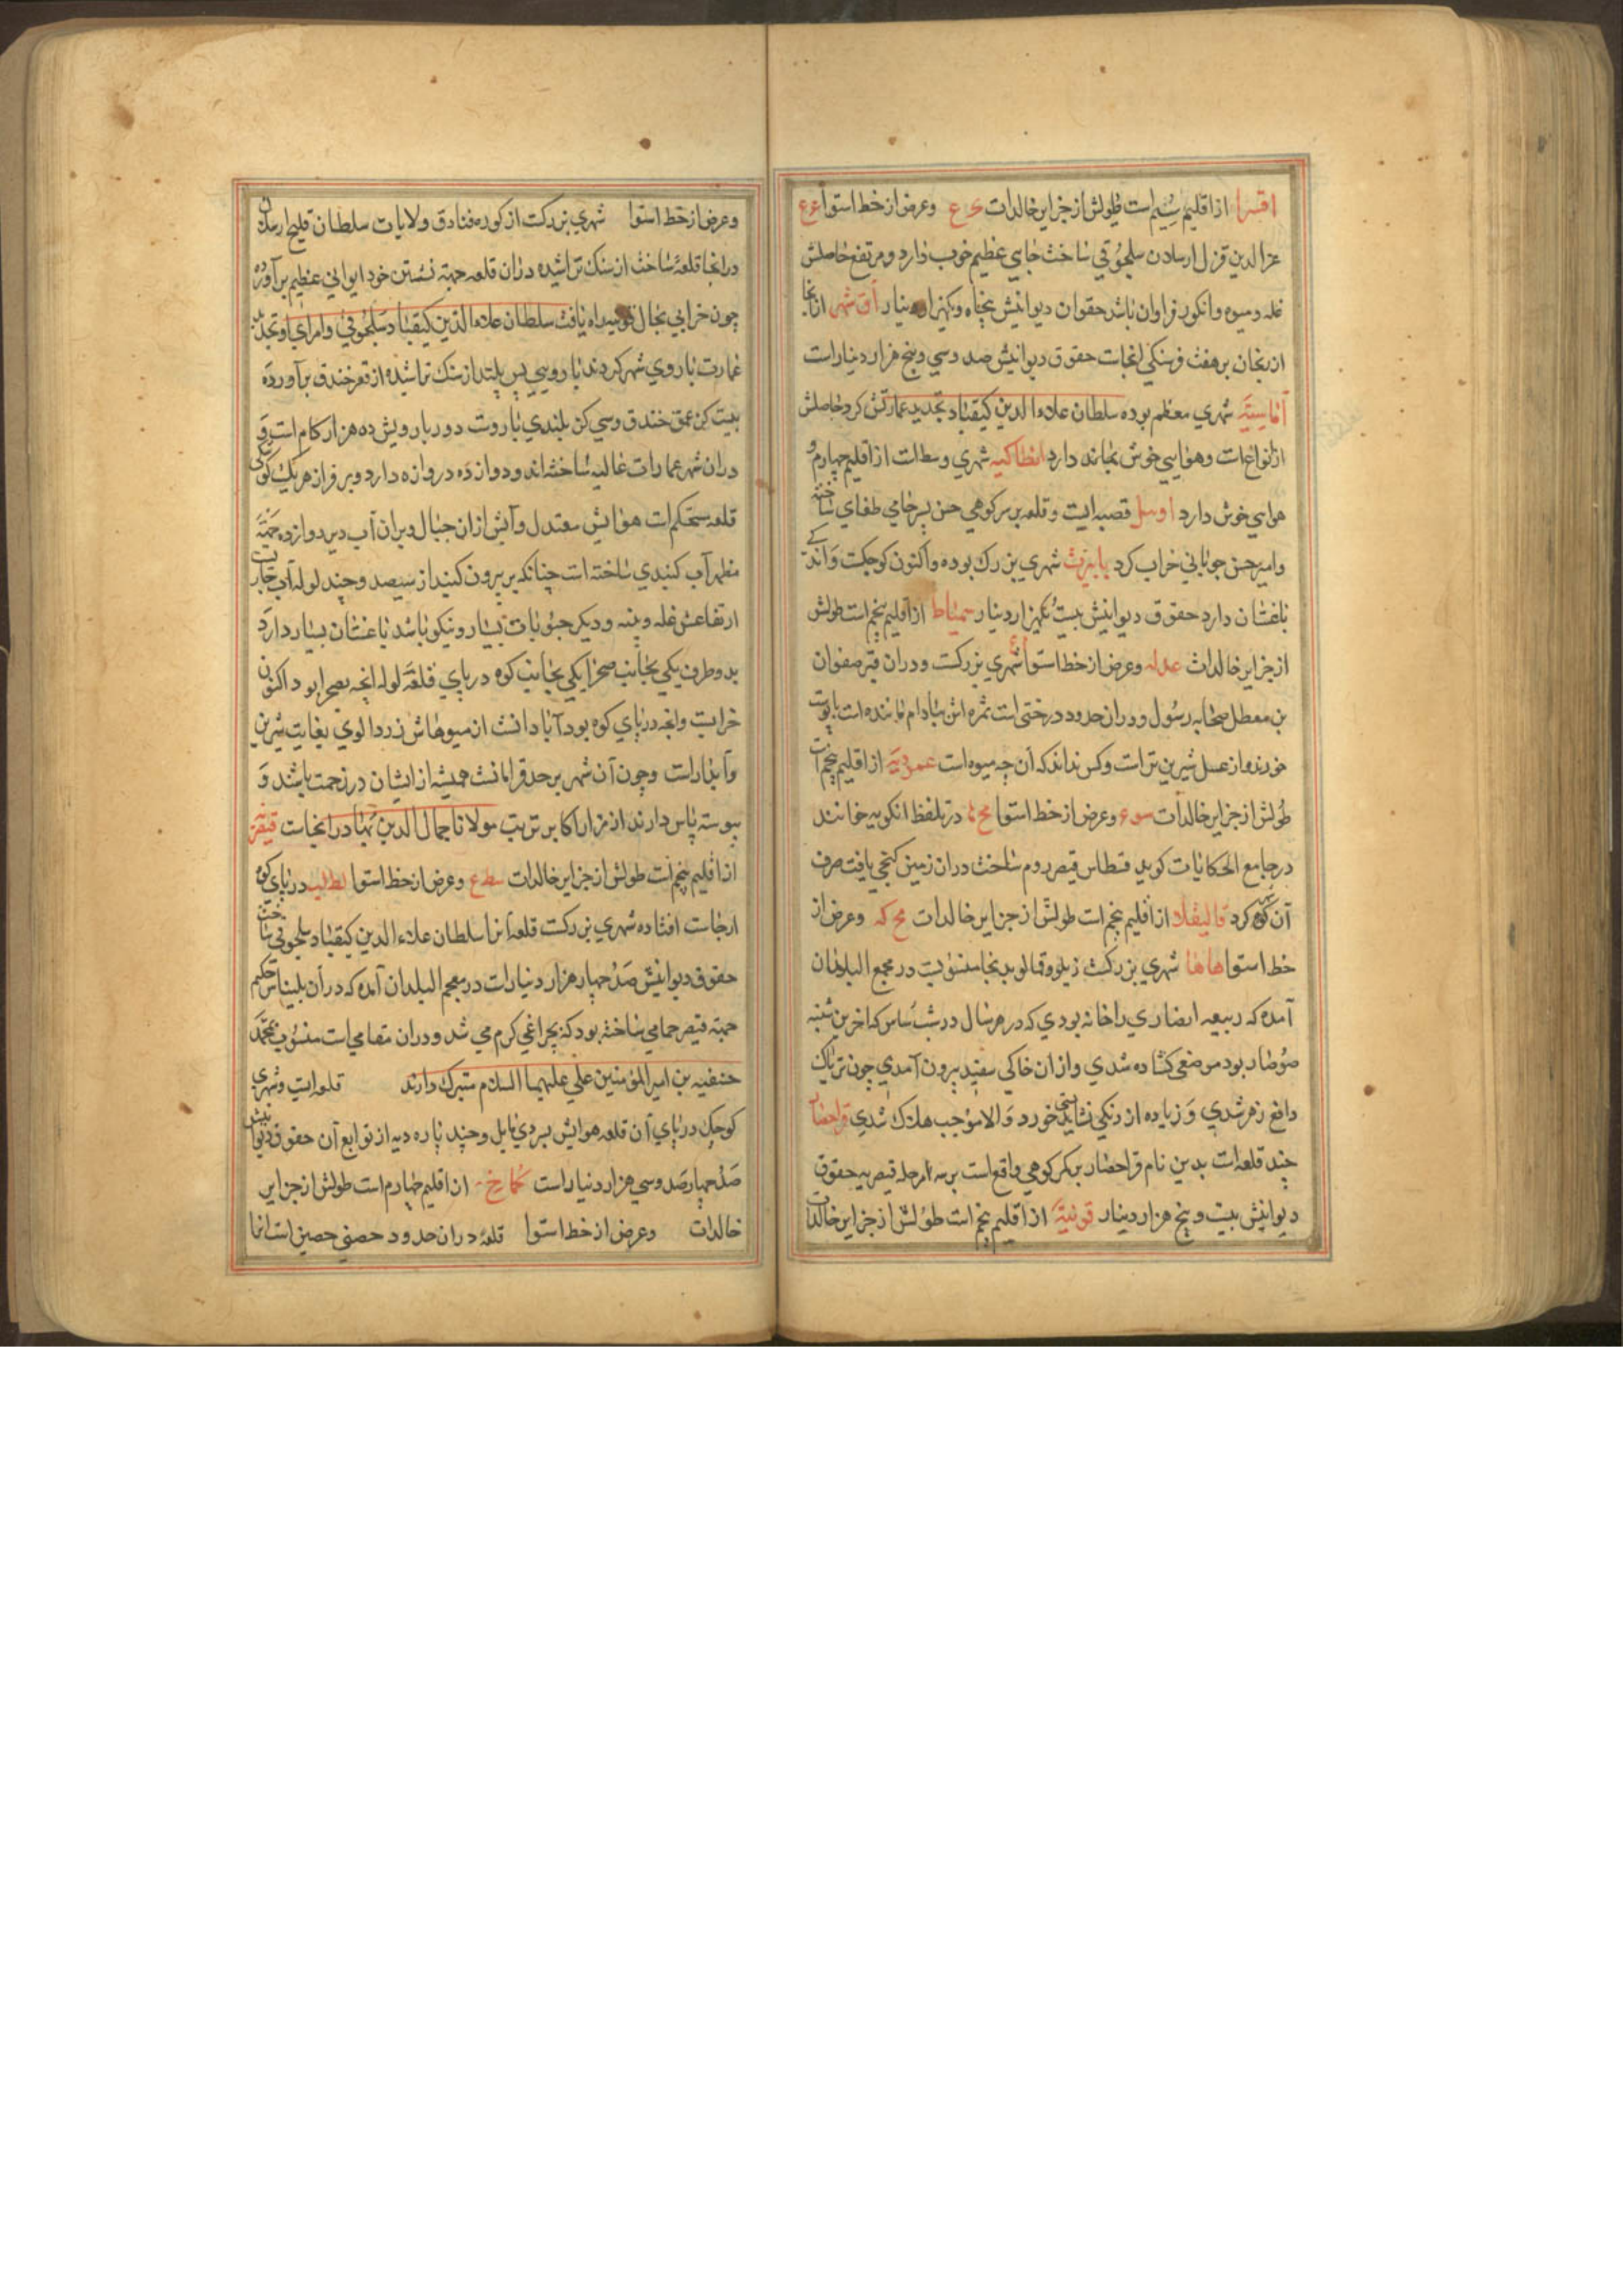 اقسرا از اقلیم سیم است طولش از جزایر خالدات ی ع وعرض از خط استوا ع ع
عزالدین قزل ارسلان سلجوقی ساخت جایی عظیم خوب دارد ومرتفع حاصلش
غله ومیوه وانکور فراوان باشد حقوق دیوانیش پنجاه ویکهزار دینار آق شهر از
ارزنجان بر هفت فرسنکی انجاست حقوق دیوانیش صد وسی وپنج هزار دینار است
آماسیه شهری معظم بوده سلطان علاء الدین کیقباد تجدید عمارتش کرد حاصلش
از انواع است وهوایی خوش دارد انطاکیه شهری وسط است از اقلیم چهارم
هوایی خوش دارد قصبه ایست وقلعه بر سر کوهی حسن پسر حاجی طغای ساخته
وامیر حسن چوپانی خراب کرد بابرت شهری بزرک بوده واکنون کوچکست واندکی
باغستان دارد حقوق دیوانیش بیست ویکهزار دینار سمیاط از اقلیم پنجم است طولش
از جزایر خالدات وعرض از خط استوا شهری بزرکست ودران قبر صفوان
بن معطل صحابه رسول ودران حدود درختی است ثمره اش ببادام مانند است باپوست
خورند واز عسل شیرین تر است وکس نداند که آن چه میوه است عموریه از اقلیم پنجم است
طولش از جزایر خالدات وعرض از خط استوا مح در تلفظ انکوریه خوانند
در جامع الحکایات کوید قسطاس قیصر روم ساخت دران زمین کنجی یافت صرف
آن کرد قالیقلا از اقلیم پنجم است طولش از جزایر خالدات مح که وعرض از
خط استوا شهری بزرکست زیلو وقالی بدانجا منسوبست در معجم البلدان
آمده که ربیعه انصاری را خانه بودی که در هر سال در شب شباس که اخرین شنبه
صوم نصاری بود موضعی کشاده شدی واز ان خاکی سفید بیرون آمدی چون تریاک
دافع زهر شدی وزیاده از دنکی نشایستی خورد والا موجب هلاک شدی قراحصار
چند قلعه است بدین نام قراحصار بر کمر کوهی واقع است بر سه مرحله قیصریه حقوق
دیوانیش بیست وپنج هزار دینار قونیه از اقلیم پنجم است طولش از جزایر خالدات
وعرض از خط استوا شهری بزرکست از کوره ولایات سلطان قلیج ارسلان
در انجا قلعه ساخت از سنک تراشیده دران قلعه جهة نشستن خود ایوانی عظیم بر آورد
چون خرابی بحال راه یافت سلطان علاءالدین کیقباد سلجوقی وامرای او تجدید
عمارت باروی شهر کردند بارویی پس بلند از سنک تراشیده از قعر خندق بر آورده
بیست کز عمق خندق وسی کز بلندی باروست دور بارویش ده هزار کام است و
دران شهر عمارات عالیه ساخته اند ودوازده دروازه دارد وبر فراز هر یک
قلعه مستحکم است هوایش معتدل وآبش از ان جبال وبران آب در دروازه جهة
مظهر آب کنبدی ساخته است چنانکه بر بیرون کنبد از سیصد وچند لوله آب جاریست
ارتفاعش غله وپنبه ودیکر حبوبات بسیار ونیکو باشد باغستان بسیار دارد
بدو طرف یکی بجانب صحرا یکی بجانب کوه در پای قلعه لوله انچه بصحرا بود اکنون
خرابست وانچه در پای کوه بود آبادانست از میوهاش زردالوی بغایت شیرین
وآبدار است وچون آن شهر بر حد قرامانست همیشه از ایشان در زحمت باشند و
پیوسته پاس دارند از مزار اکابر تربت مولانا جمال الدین در انجاست قیصریه
از اقلیم پنجم است طولش از جزایر خالدات سط ع وعرض از خط استوا لط لب در پای کوه
ارجاست افتاده شهری بزرکست قلعه انرا سلطان علاء الدین کیقباد سلجوقی ساخت
حقوق دیوانیش صد چهار هزار دینار است در معجم البلدان آمده که دران بلیناس حکیم
جهة قیصر حمامی ساخته بود که بچراغی کرم می شد ودران مقامی است منسوب بمحمد
حنفیه بن امیر المؤمنین علی علیهما السلام متبرک دارند قلعه ایست وشهری
کوچک در پای آن قلعه هوایش بسردی مایل وچند پاره دیه از توابع آن حقوق دیوانیش
صد چهار صد وسی هزار دینار است کماخ از اقلیم چهارم است طولش از جزایر
خالدات وعرض از خط استوا قلعه دران حدود حصنی حصین است انرا